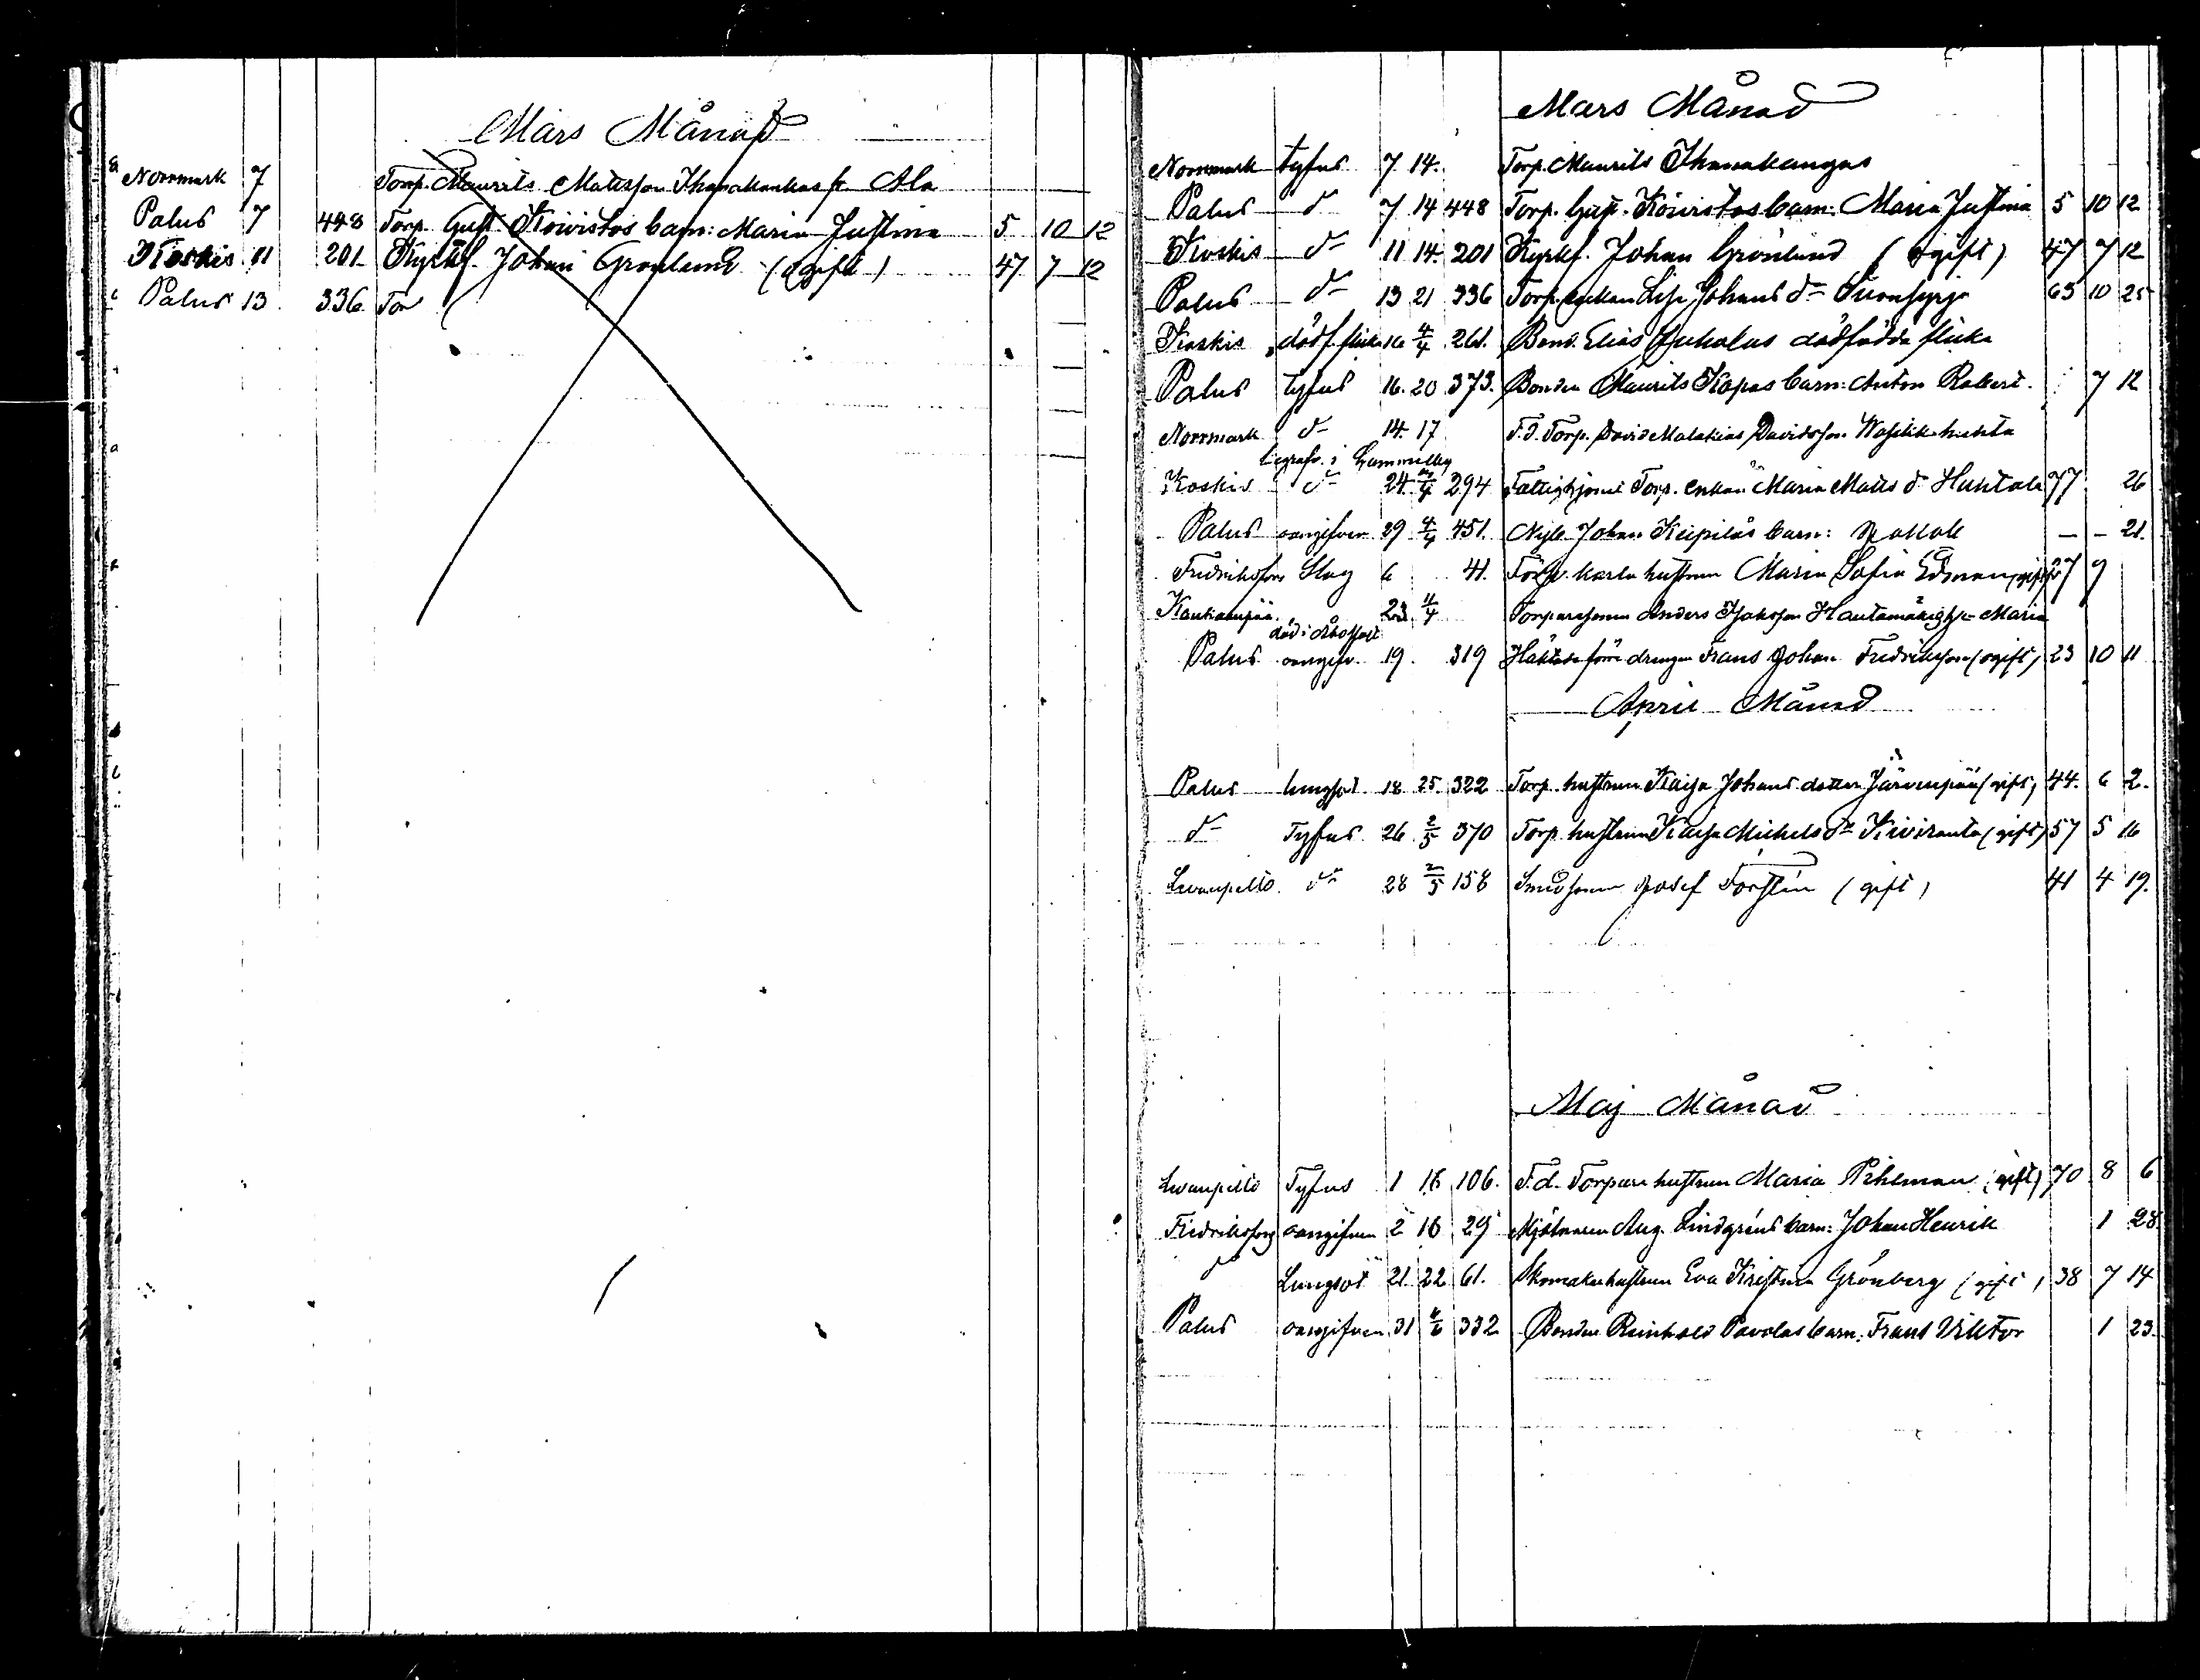 Mars Månad
Norrmark 7 Torp. Maurits Mattsson Ihanakankas fr Ala
Palus 7 448 Torp. Gust. Koivistos barn: Maria Justina 5 10 12
Koskis 11 201 Kyrkf. Johan Grönlund (ogift) 47 7 12
Palus 13 336 Tor
Mars Månad
Norrmark tyfus 7 14. Torp. Maurits Ihanakangas
Palus d- 7 14 448 Torp. Gust. Koivistos barn: Maria Justina 5 10 12
Koskis d- 11 14. 201 Kyrkf. Johan Grönlund (ogift) 47 7 12
Palus d- 13 21 336 Torp. enkan Lisa Johans d- 63 10 25
Koskis dödf. flicka 16 4/4 261. Bond. Elias Jukolas dödfödda flicka
Palus tyfus 16. 20 373. Bonden Maurits Kapas barn: Anton Robert. 7 12
Norrmark d- 14. 17 F.d. Torp. David Malakias Davidsson
begrafv. i Hammelby
Koskis d- 24. 294 Fattighjonet Torp. enkan Maria Matts d- Huhtala 77 26
Palus oangifven 29 4/4 451. Johan Keipiläs barn: 21.
Fredriksfors Slag 6 41. Torp. karla hustrun Maria Sofia Edman (gift) 27 9
23. 11/4 Torparesonen Anders Isaksson Hautamäki Maria
död i Åbo
Palus oangifv. 19. 319 Häktade förre drengen Frans Johan Fredriksson (ogift) 23 10 11
April Månad
Palus lungsot 18 25. 322 Torp. hustrun Kaisa Johans dotter Järvenpää (gift) 44. 6 2.
d- Tyfus 26 2/5 370 Torp. hustrun Kaisa Michels dr Kiviranta (gift) 57 5 16
Levanpelto d- 28 2/5 158 Smedsonen Josef Forstén (gift) 41 4 19.
Maj Månad
Levanpelto Tyfus 1 16 106. F.d. Torpare hustrun Maria Pihlman (gift) 70 8 6
Fredriksfors oangifven 2 16 29 Mjölnaren Aug. Lindgréns barn: Johan Henrik 1 28.
d- Lungsot 21. 22 61. Skomakarhustrun Eva Kristina Grönberg (gift) 38 7 14
Palus oangifven 31 4/6 332 Bonden Reinhold Pavolas barn: Frans Viktor 1 23.